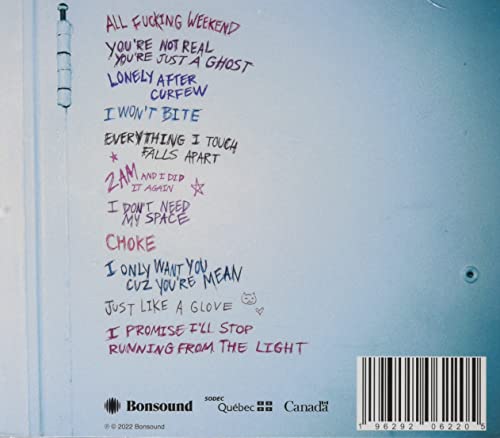 ALL FUCKING WEEKEND
YOU'RE NOT REAL
YOU'RE JUST A GHOST
LONELY AFTER
CURFEW
I WON'T BITE
EVERYTHING I TOUCH
FALLS APART
2AM AND I DID
IT AGAIN
I DON'T NEED
MY SPACE
CHOKE
I ONLY WANT YOU
CUZ YOU'RE MEAN
JUST LIKE A GLOVE
I PROMISE I'LL STOP
RUNNING FROM THE LIGHT
Bonsound
SODEC
Québec
Canada
℗ © 2022 Bonsound
1 96292 06220 5